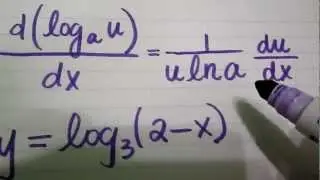 d(logₐ u)/dx = 1/(u ln a) du/dx
y = log₃(2-x)